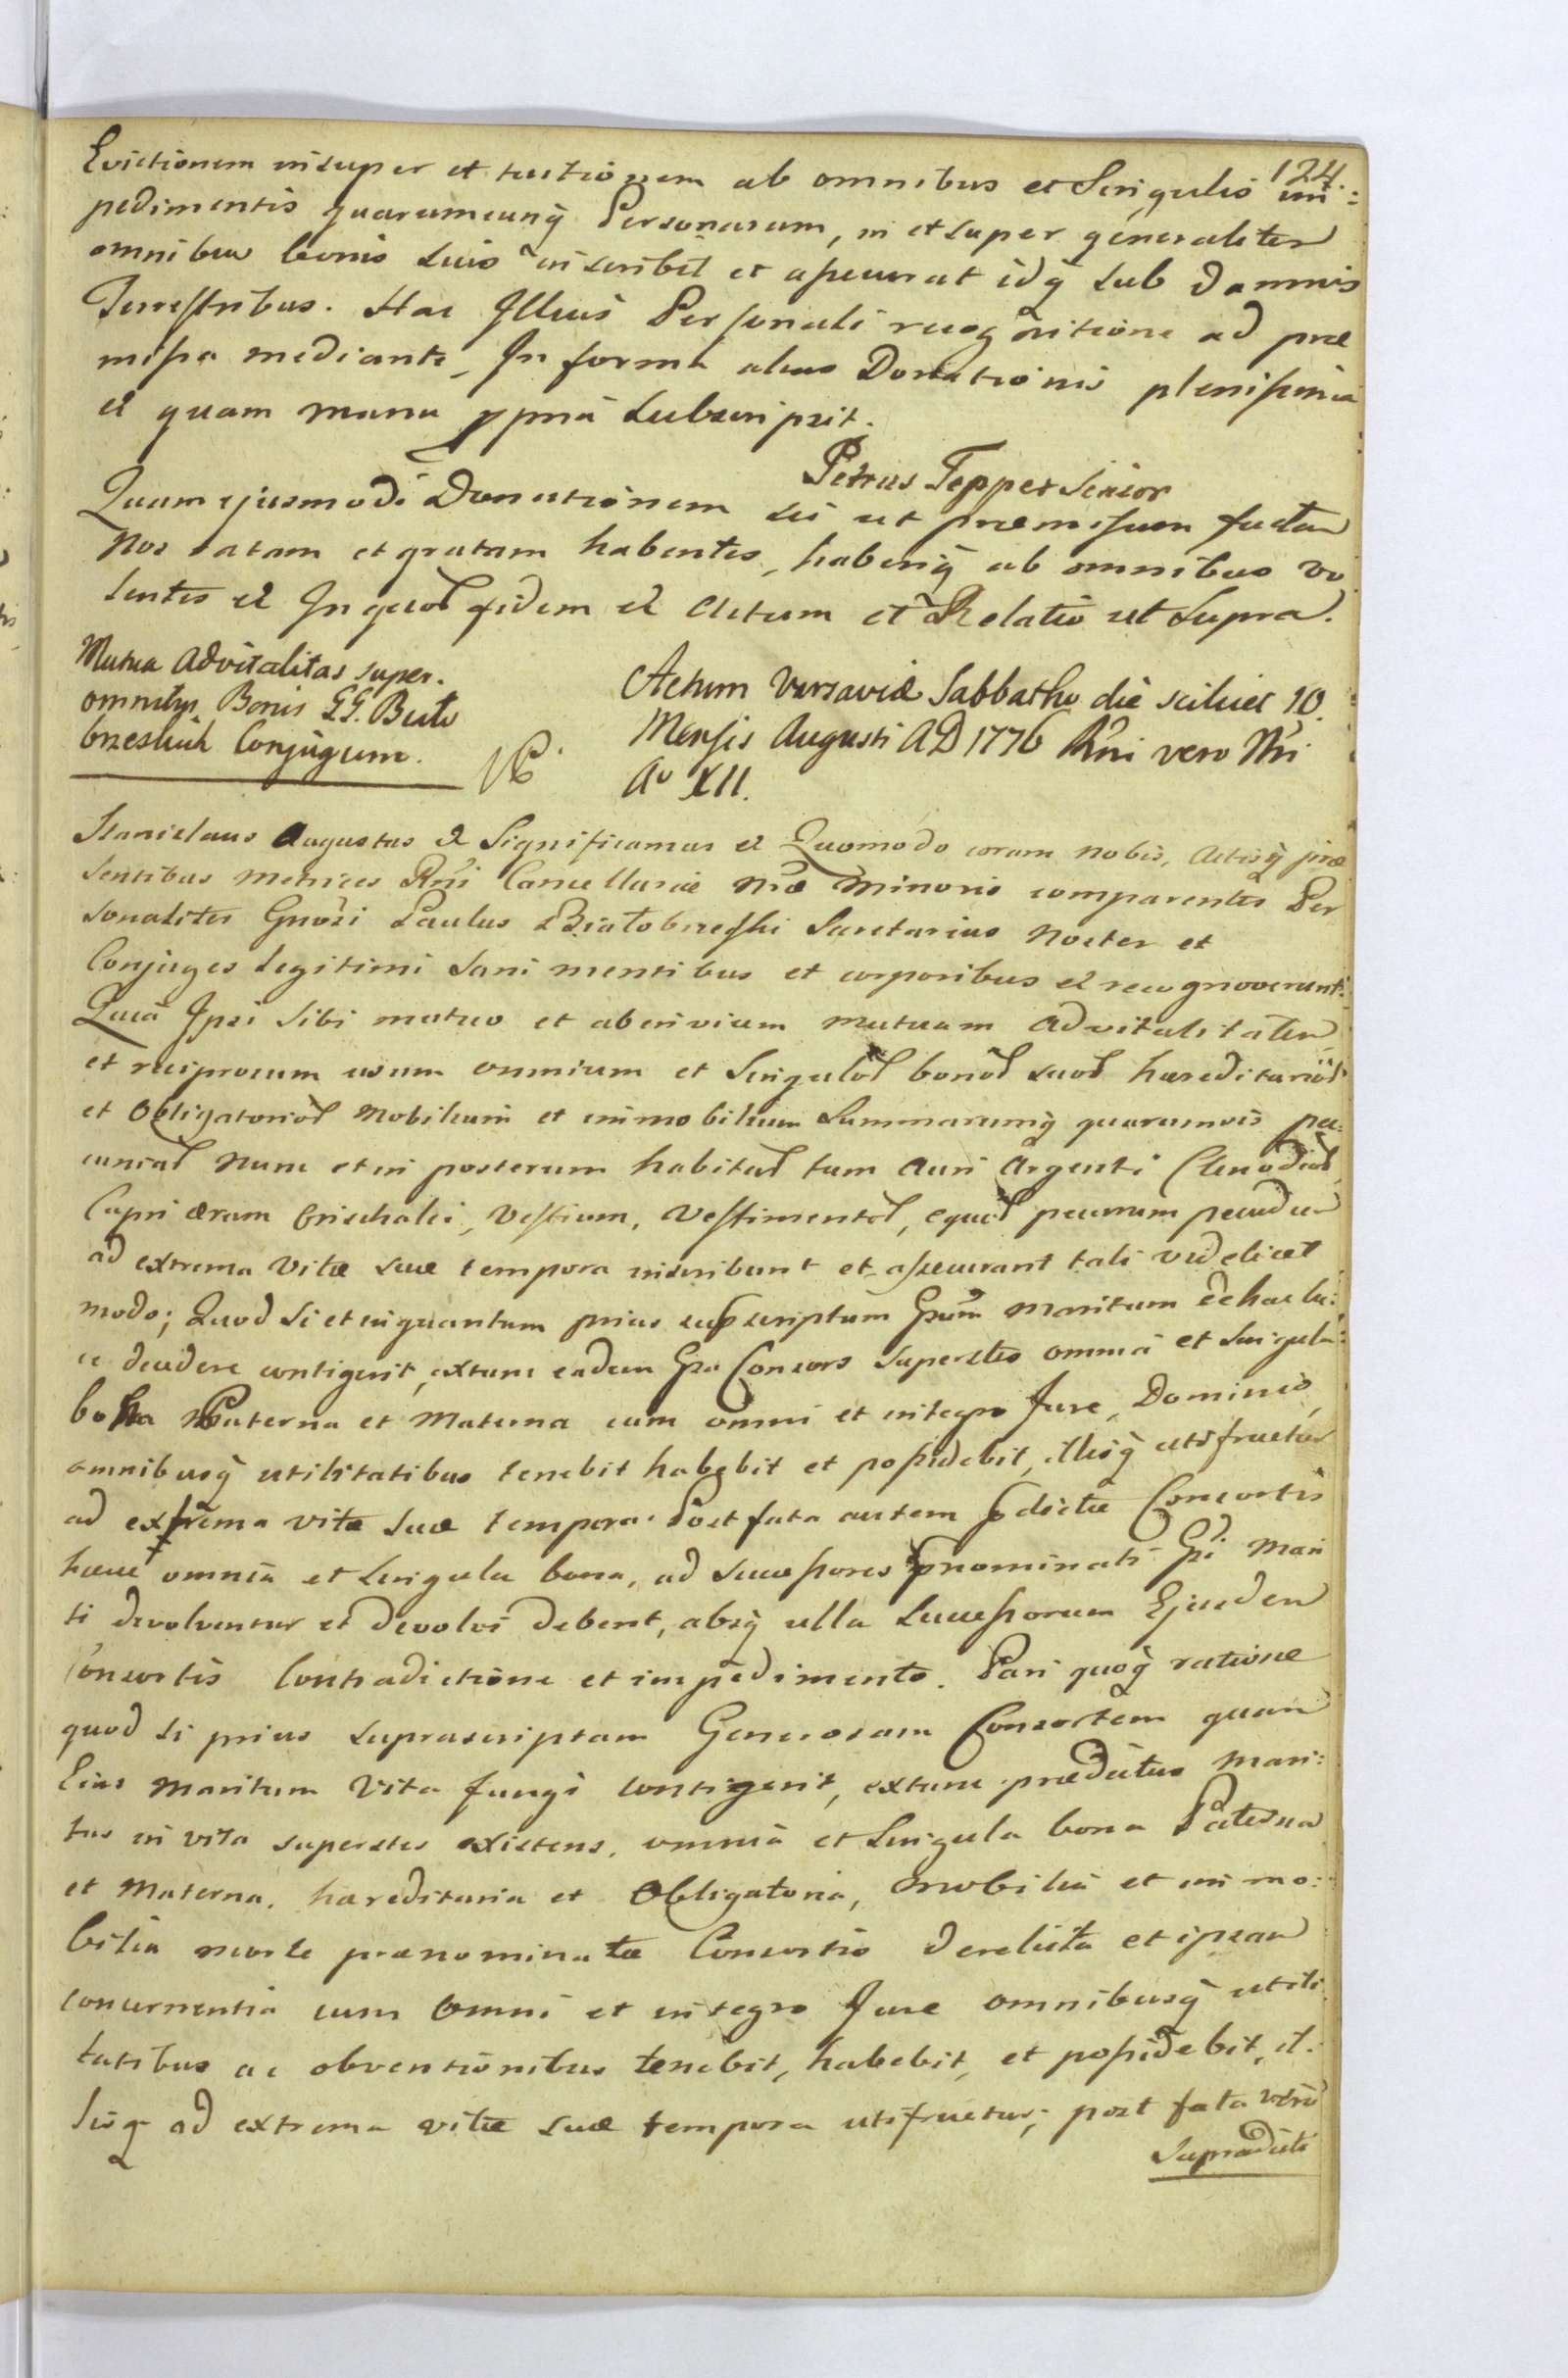 124.
Evictionem insuper et tuitionem ab omnibus et Singulis im:
pedimentis quarumcunq̃ Personarum, in et super generaliter
omnibus bonis suis inscribit et assecurat idq̃ sub damnis
Terrestribus. Hac Illius Personali recognitione ad præ
missa mediante, In forma alias Donationis plenissima
et quam manu ppria subscripsit.
Petrus Tepper Senior
Quam ejusmodi Donationem sic ut præmissum factam
Nos ratam et gratam habentes, haberiq̃ ab omnibus vo
lentes et In quor fidem et Actum et Relatio ut Supra.
Mutua Advitalitas super
omnibus Bonis GG. Biało
brzeskich Conjugum.
Actum Varsaviæ Sabbatho die scilicet 10.
Mensis Augusti AD 1776 Rñi vero Nri
Ao XII.
Stanislaus Augustus et Significamus et Quomodo coram nobis, Actisq̃ præ
sentibus Metrices Rñi Cancellariæ Nræ Minoris comparentes Per
sonaliter Gnosi Paulus Białobrzeski Secretarius Noster et
Conjuges Legitimi sani mentibus et corporibus et recognoverunt:
Quia Ipsi sibi mutuo et abinvicem mutuam advitalitatem
et reciprocum usum omnium et Singulor bonor suor hæreditarior
et Obligatorior Mobilium et immobilium Summarumq̃ quarumvis pec:
cuniar nunc et in posterum habitar tum Auri Argenti Clenodior,
Cupri æram Orischalci, Vestium, Vestimentor, equor pecorum pecudum
ad extrema Vitæ suæ tempora inscribunt et assecurant tali videlicet
modo; Quod si et inquantum prius suprascriptum Gsum Maritum de hac lu:
ce decedere contigerit, extunc eadem Gsa Consors superstes omnia et singula
bona Paterna et Materna cum omni et integro Jure, Dominio,
omnibusq̃ utilitatibus tenebit habebit et possidebit, illisq̃ utifruetur
ad extrema vitæ suæ tempora. Post fata autem pdictæ Consortis
hæc omnia et singula bona, ad successores prænominati Gsi Mari
ti devolventur et devolvi debent, absq̃ ulla successorum Ejusdem
Consortis Contradictione et impedimento. Pari quoq̃ ratione
quod si prius suprascriptam Generosam Consortem quam
Eius Maritum Vita fungi contigerit, extunc prædictus Mari:
tus in vita superstes existens, omnia et Singula bona Paterna
et Materna, hæreditaria et Obligatoria, mobilia et immo:
bilia morte prænominatæ Consortis derelicta et ipsam
concernentia cum omni et integro Jure omnibusq̃ utili
tatibus ac obventionibus tenebit, habebit, et possidebit, il:
lisq ad extrema vitæ suæ tempora utifruetur; post fata vero
Supradicti